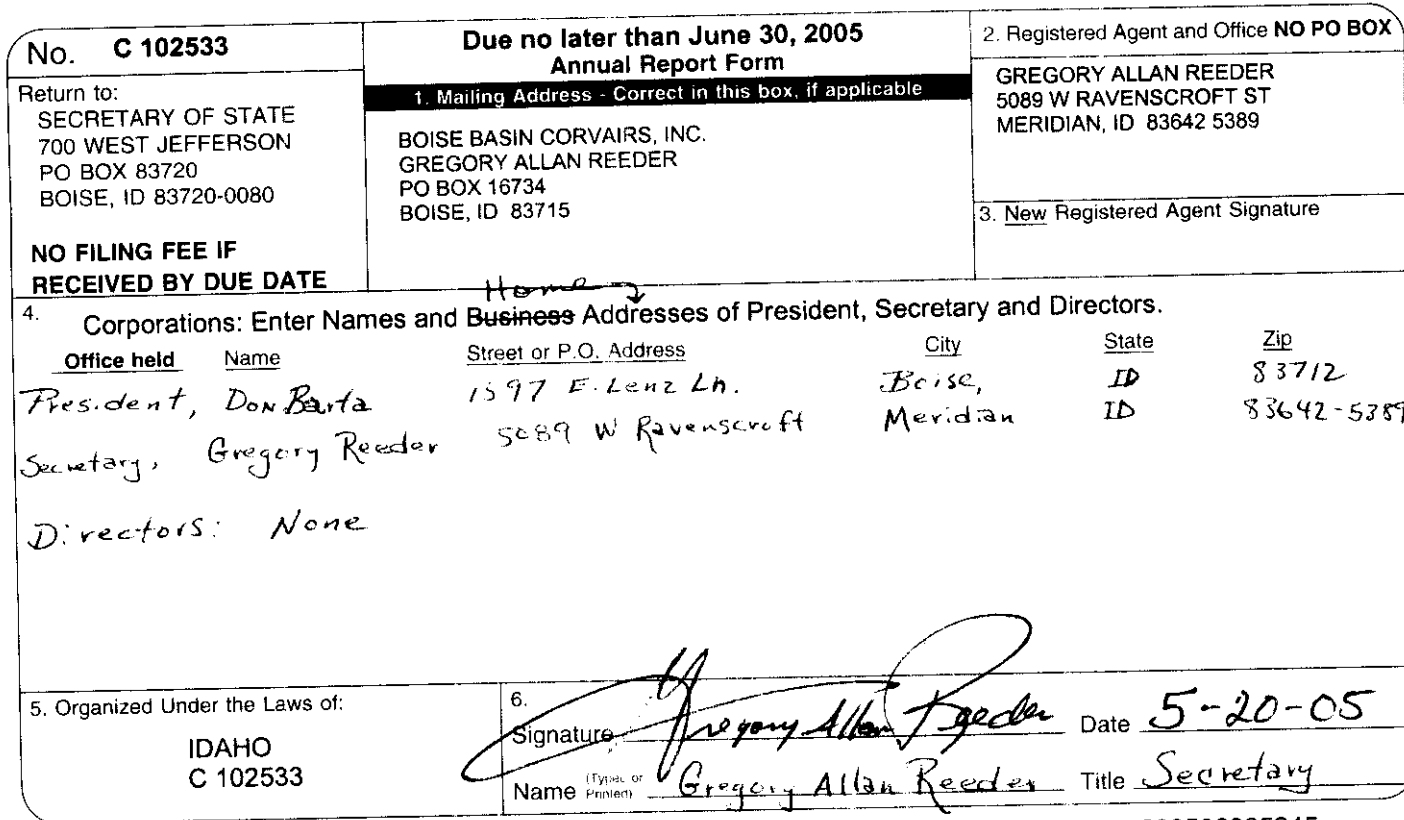 No. C 102533
Return to:
SECRETARY OF STATE
700 WEST JEFFERSON
PO BOX 83720
BOISE, ID 83720-0080
NO FILING FEE IF
RECEIVED BY DUE DATE
Due no later than June 30, 2005
Annual Report Form
1. Mailing Address - Correct in this box, if applicable
BOISE BASIN CORVAIRS, INC.
GREGORY ALLAN REEDER
PO BOX 16734
BOISE, ID 83715
2. Registered Agent and Office NO PO BOX
GREGORY ALLAN REEDER
5089 W RAVENSCROFT ST
MERIDIAN, ID 83642 5389
3. New Registered Agent Signature
Home
4. Corporations: Enter Names and Business Addresses of President, Secretary and Directors.
Office held Name Street or P.O. Address City State Zip
President, Don Barta 1597 E. Lenz Ln. Boise, ID 83712
Secretary, Gregory Reeder 5089 W Ravenscroft Meridian ID 83642-5389
Directors: None
5. Organized Under the Laws of:
IDAHO
C 102533
6.
Signature Gregory Allan Reeder Date 5-20-05
Name (Typed or Printed) Gregory Allan Reeder Title Secretary